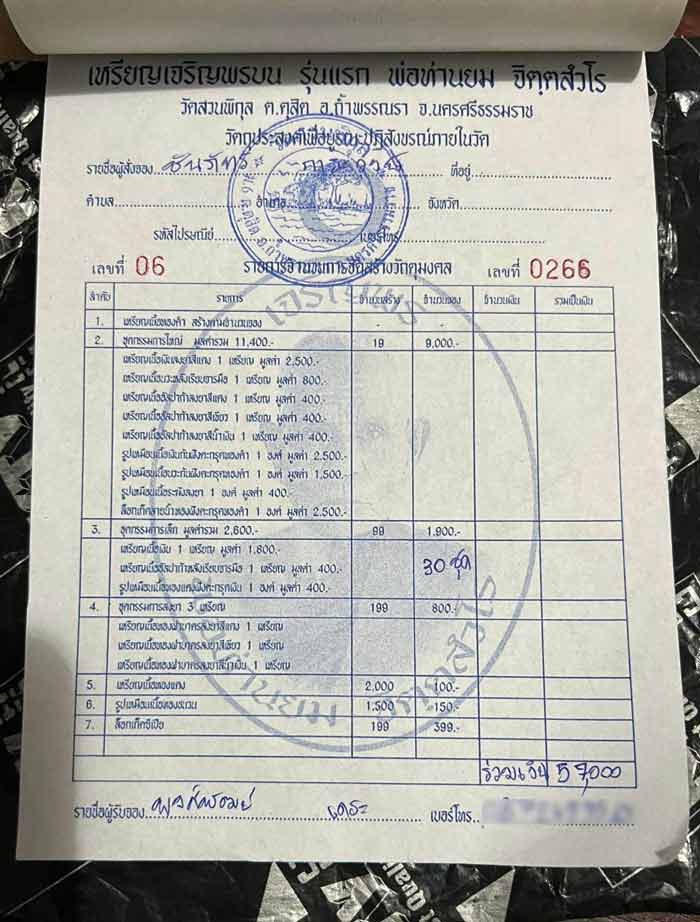 เหรียญเจริญพรบน รุ่นแรก พ่อท่านยม จิตฺตสํวโร
วัดสวนพิกุล ต.ดุสิต อ.ถ้ำพรรณรา จ.นครศรีธรรมราช
วัตถุประสงค์เพื่อบูรณะปฏิสังขรณ์ภายในวัด
รายชื่อผู้สั่งจอง ที่อยู่
ตำบล อำเภอ จังหวัด
รหัสไปรษณีย์ เบอร์โทร
เลขที่ 06 รายการจำนวนการจัดสร้างวัตถุมงคล เลขที่ 0266
ลำดับ รายการ จำนวนสร้าง จำนวนจอง จำนวนเงิน รวมเป็นเงิน
1. เหรียญเนื้อทองคำ สร้างตามจำนวนจอง - -
2. ชุดกรรมการใหญ่ มูลค่ารวม 11,400.- 19 9,000.-
เหรียญเนื้อเงินลงยาสีแดง 1 เหรียญ มูลค่า 2,500.-
เหรียญเนื้อนวะหลังเรียบจารมือ 1 เหรียญ มูลค่า 800.-
เหรียญเนื้ออัลปาก้าลงยาสีแดง 1 เหรียญ มูลค่า 400.-
เหรียญเนื้ออัลปาก้าลงยาสีเขียว 1 เหรียญ มูลค่า 400.-
เหรียญเนื้ออัลปาก้าลงยาสีน้ำเงิน 1 เหรียญ มูลค่า 400.-
รูปเหมือนเนื้อเงินก้นฝังตะกรุดทองคำ 1 องค์ มูลค่า 2,500.-
รูปเหมือนเนื้อนวะก้นฝังตะกรุดทองคำ 1 องค์ มูลค่า 1,500.-
รูปเหมือนเนื้อระฆังลงยา 1 องค์ มูลค่า 400.-
ล็อกเก็ตฉากน้ำทองฝังตะกรุดทองคำ 1 องค์ มูลค่า 2,500.-
3. ชุดกรรมการเล็ก มูลค่ารวม 2,600.- 99 1,900.-
เหรียญเนื้อเงิน 1 เหรียญ มูลค่า 1,800.-
เหรียญเนื้ออัลปาก้าหลังเรียบจารมือ 1 เหรียญ มูลค่า 400.- 30 ชุด
รูปเหมือนเนื้อทองแดงฝังตะกรุดเงิน 1 องค์ มูลค่า 400.-
4. ชุดกรรมการลงยา 3 เหรียญ 199 800.-
เหรียญเนื้อทองฝาบาตรลงยาสีแดง 1 เหรียญ
เหรียญเนื้อทองฝาบาตรลงยาสีเขียว 1 เหรียญ
เหรียญเนื้อทองฝาบาตรลงยาสีน้ำเงิน 1 เหรียญ
5. เหรียญเนื้อทองแดง 2,000 100.-
6. รูปเหมือนเนื้อทองชนวน 1,500 150.-
7. ล็อกเก็ตซีเปีย 199 399.-
รวมเงิน 57,000
รายชื่อผู้รับจอง เบอร์โทร